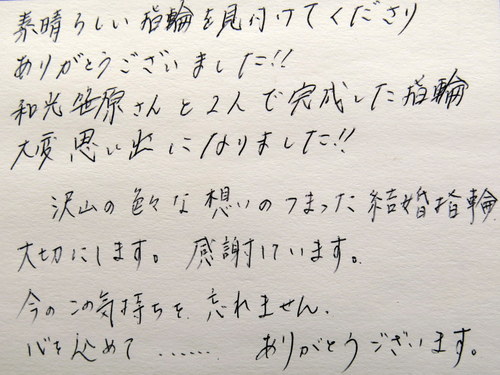 素晴らしい指輪を見付けてくださり
ありがとうございました!!
和光笹原さんと2人で完成した指輪
大変思い出になりました!!
沢山の色々な想いのつまった結婚指輪
大切にします。感謝しています。
今のこの気持ちを忘れません。
心を込めて……ありがとうございます。